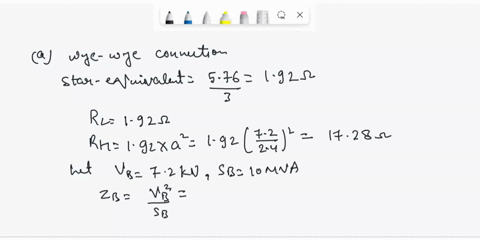 (a) wye-wye connection
star-equivalent = 5.76/3 = 1.92Ω
RL = 1.92Ω
RH = 1.92 x a² = 1.92 (7.2/2.4)² = 17.28Ω
let VB = 7.2 kV, SB = 10 MVA
ZB = VB²/SB =